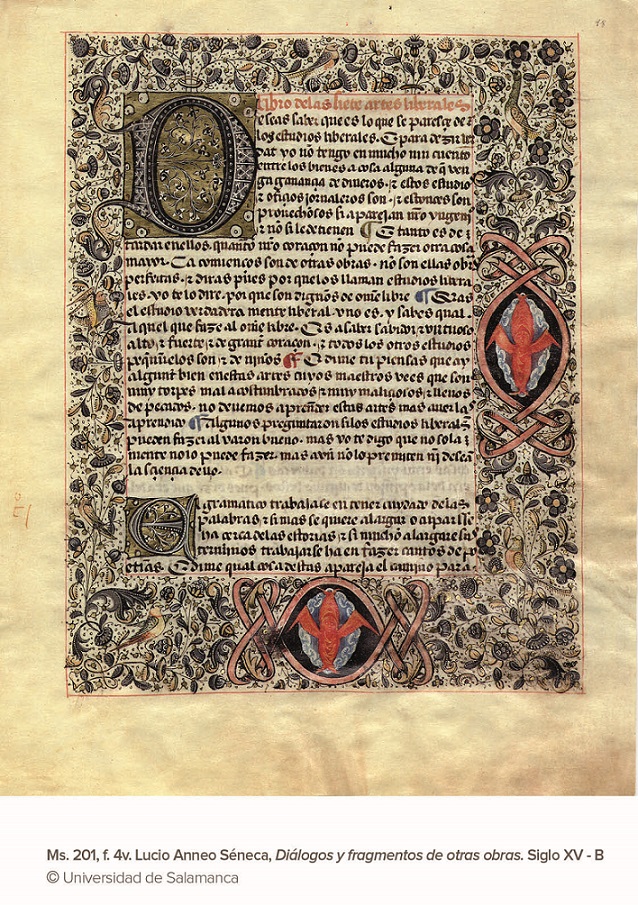 Libro delas siete artes liberales
Deseas saber que es lo que se paresçe de
los estudios liberales. E para dezir ver
dat yo no tengo en mucho nin cuento
entre los bienes a cosa alguna de que ven
ga ganançia de dineros. & estos estudios
& ofiçios jornaleros son. & estonçes son
prouechosos si aparejan nro yngenio
& no si le detienen ¶ E tanto es de
tardar en ellos. quanto nro coraçon no puede fazer otra cosa
mayor. Ca comienços son de otras obras. no son ellas obras
perfeitas. & diras pues por que los llaman estudios libera
les. yo te lo dire. por que son dignos de ome libre ¶ Mas
el estudio verdadera mente liberal. vno es. y sabes qual
aquel que faze al ome libre. Es a saber sabidor. virtuoso
alto & fuerte & de grant coraçon. & todos los otros estudios
pequeñuelos son & de niños ¶ O dime tu piensas que ay
algunt bien en estas artes cuyos maestros vees que son
muy torpes mal acostumbrados & muy maliçiosos & llenos
de pecados. no deuemos aprender estas artes mas auer las
aprendido ¶ Algunos preguntaron si los estudios liberales
pueden fazer al varon bueno. mas yo te digo que no sola
mente no lo pueden fazer. mas avn no lo prometen nin dessean
la sçiençia dello.
El gramatico trabajase en tener cuydado delas
palabras & si mas se quiere alargar o
ha çerca delas estorias & si mucho alargare sus
terminos trabajarse ha en fazer cantos de po
etrias. E dime qual cosa destas apareja el camino para
Ms. 201, f. 4v. Lucio Anneo Séneca, Diálogos y fragmentos de otras obras. Siglo XV - B
© Universidad de Salamanca